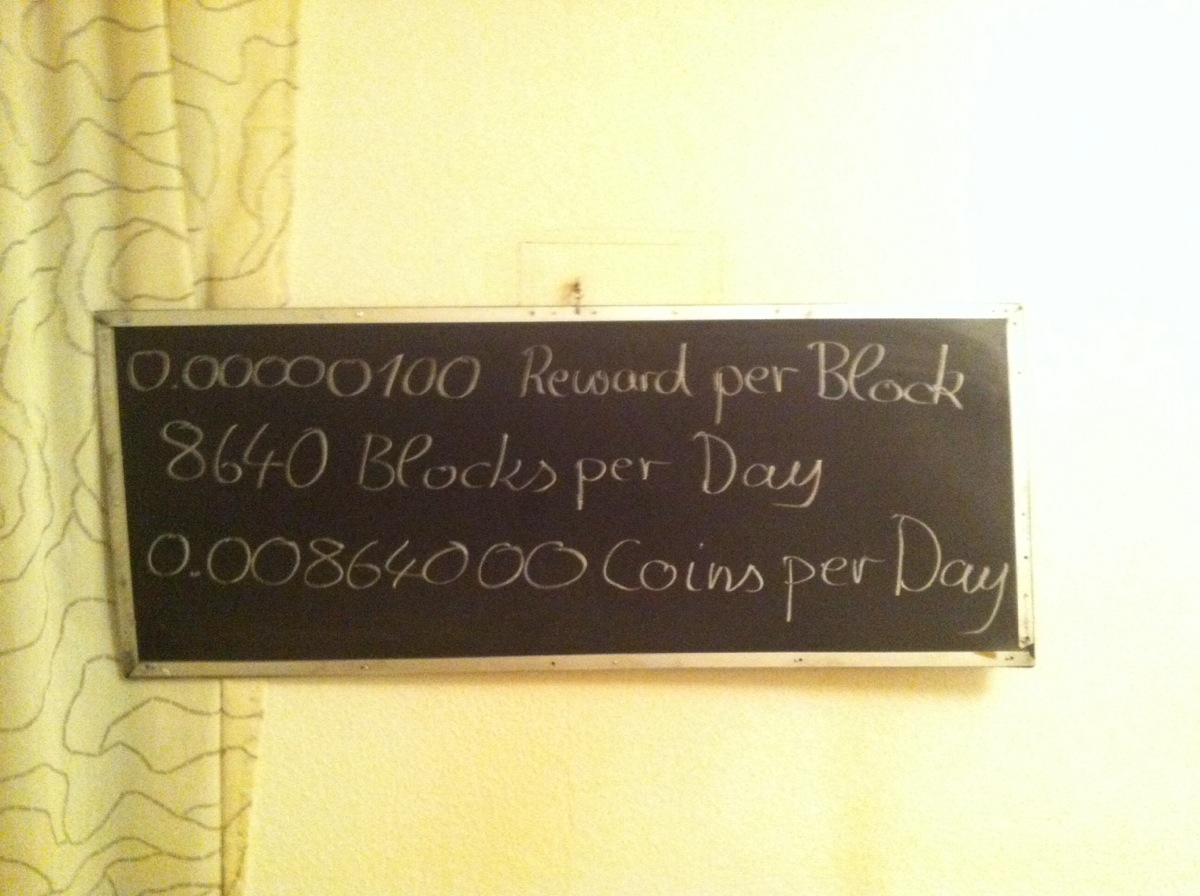 0.00000100 Reward per Block
8640 Blocks per Day
0.00864000 Coins per Day